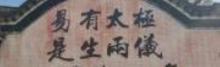 易有太極
是生兩儀